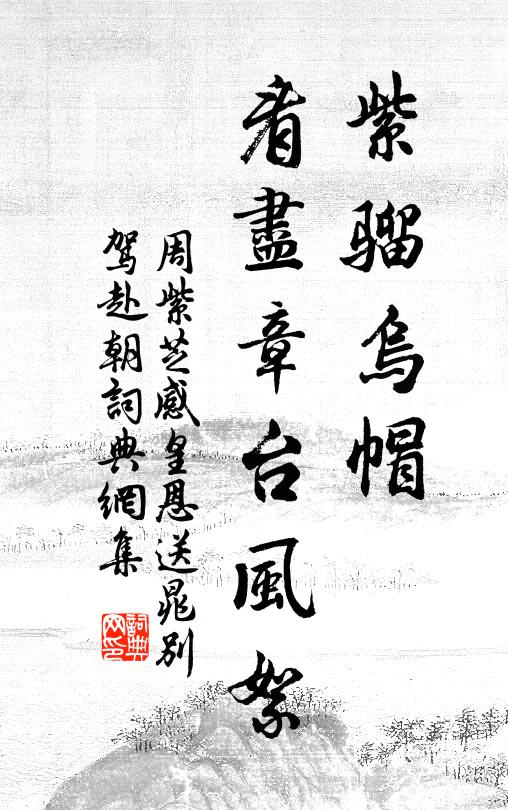 紫骝烏帽
看盡章台風絮
周紫芝感皇恩送晁別
驾赴朝詞典網集
詞典网印